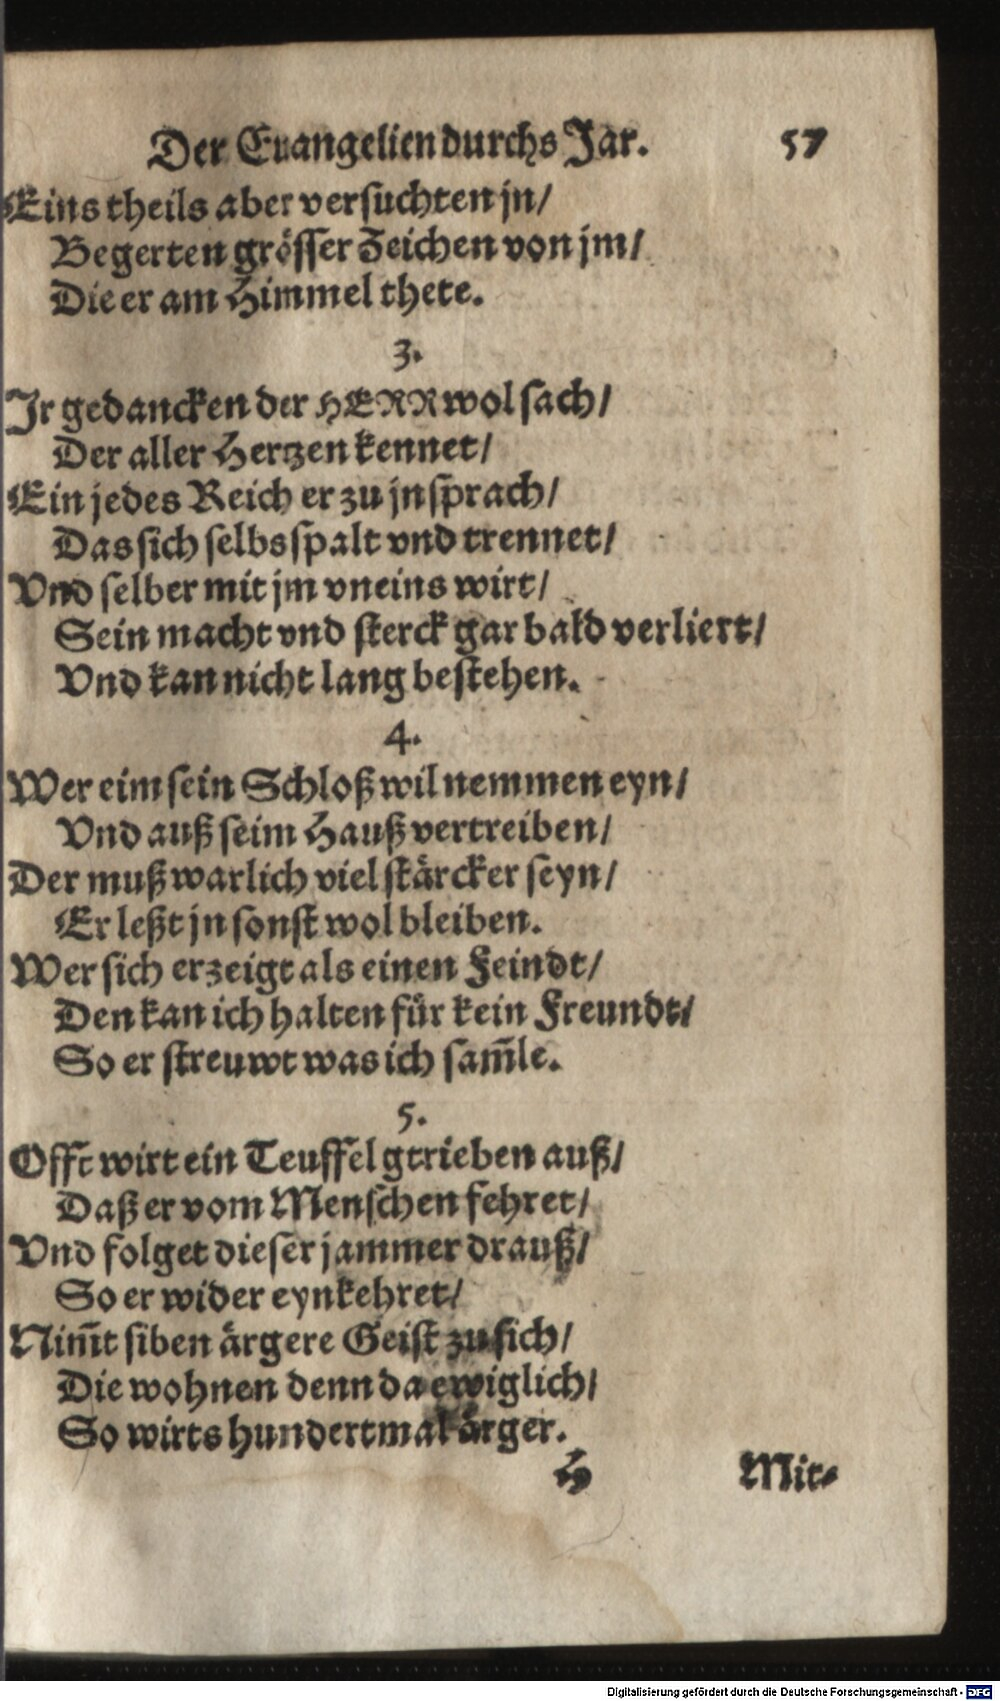 Der Euangelien durchs Jar. 57
Eins theils aber versuchten jn/
Begerten grösser Zeichen von jm/
Die er am Himmel thete.
3.
Jr gedancken der HERR wol sach/
Der aller Hertzen kennet/
Ein jedes Reich er zu jn sprach/
Das sich selbs spalt vnd trennet/
Vnd selber mit jm vneins wirt/
Sein macht vnd sterck gar bald verliert/
Vnd kan nicht lang bestehen.
4.
Wer eim sein Schloß wil nemmen eyn/
Vnd auß seim Hauß vertreiben/
Der muß warlich viel stärcker seyn/
Er leßt jn sonst wol bleiben.
Wer sich erzeigt als einen Feindt/
Den kan ich halten für kein Freundt/
So er streuwt was ich sam̄le.
5.
Offt wirt ein Teuffel gtrieben auß/
Daß er vom Menschen fehret/
Vnd folget dieser jammer drauß/
So er wider eynkehret/
Nim̄t siben ärgere Geist zu sich/
Die wohnen denn da ewiglich/
So wirts hundertmal ärger.
H Mit-
Digitalisierung gefördert durch die Deutsche Forschungsgemeinschaft - DFG